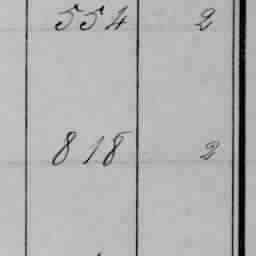 554 2
818 2